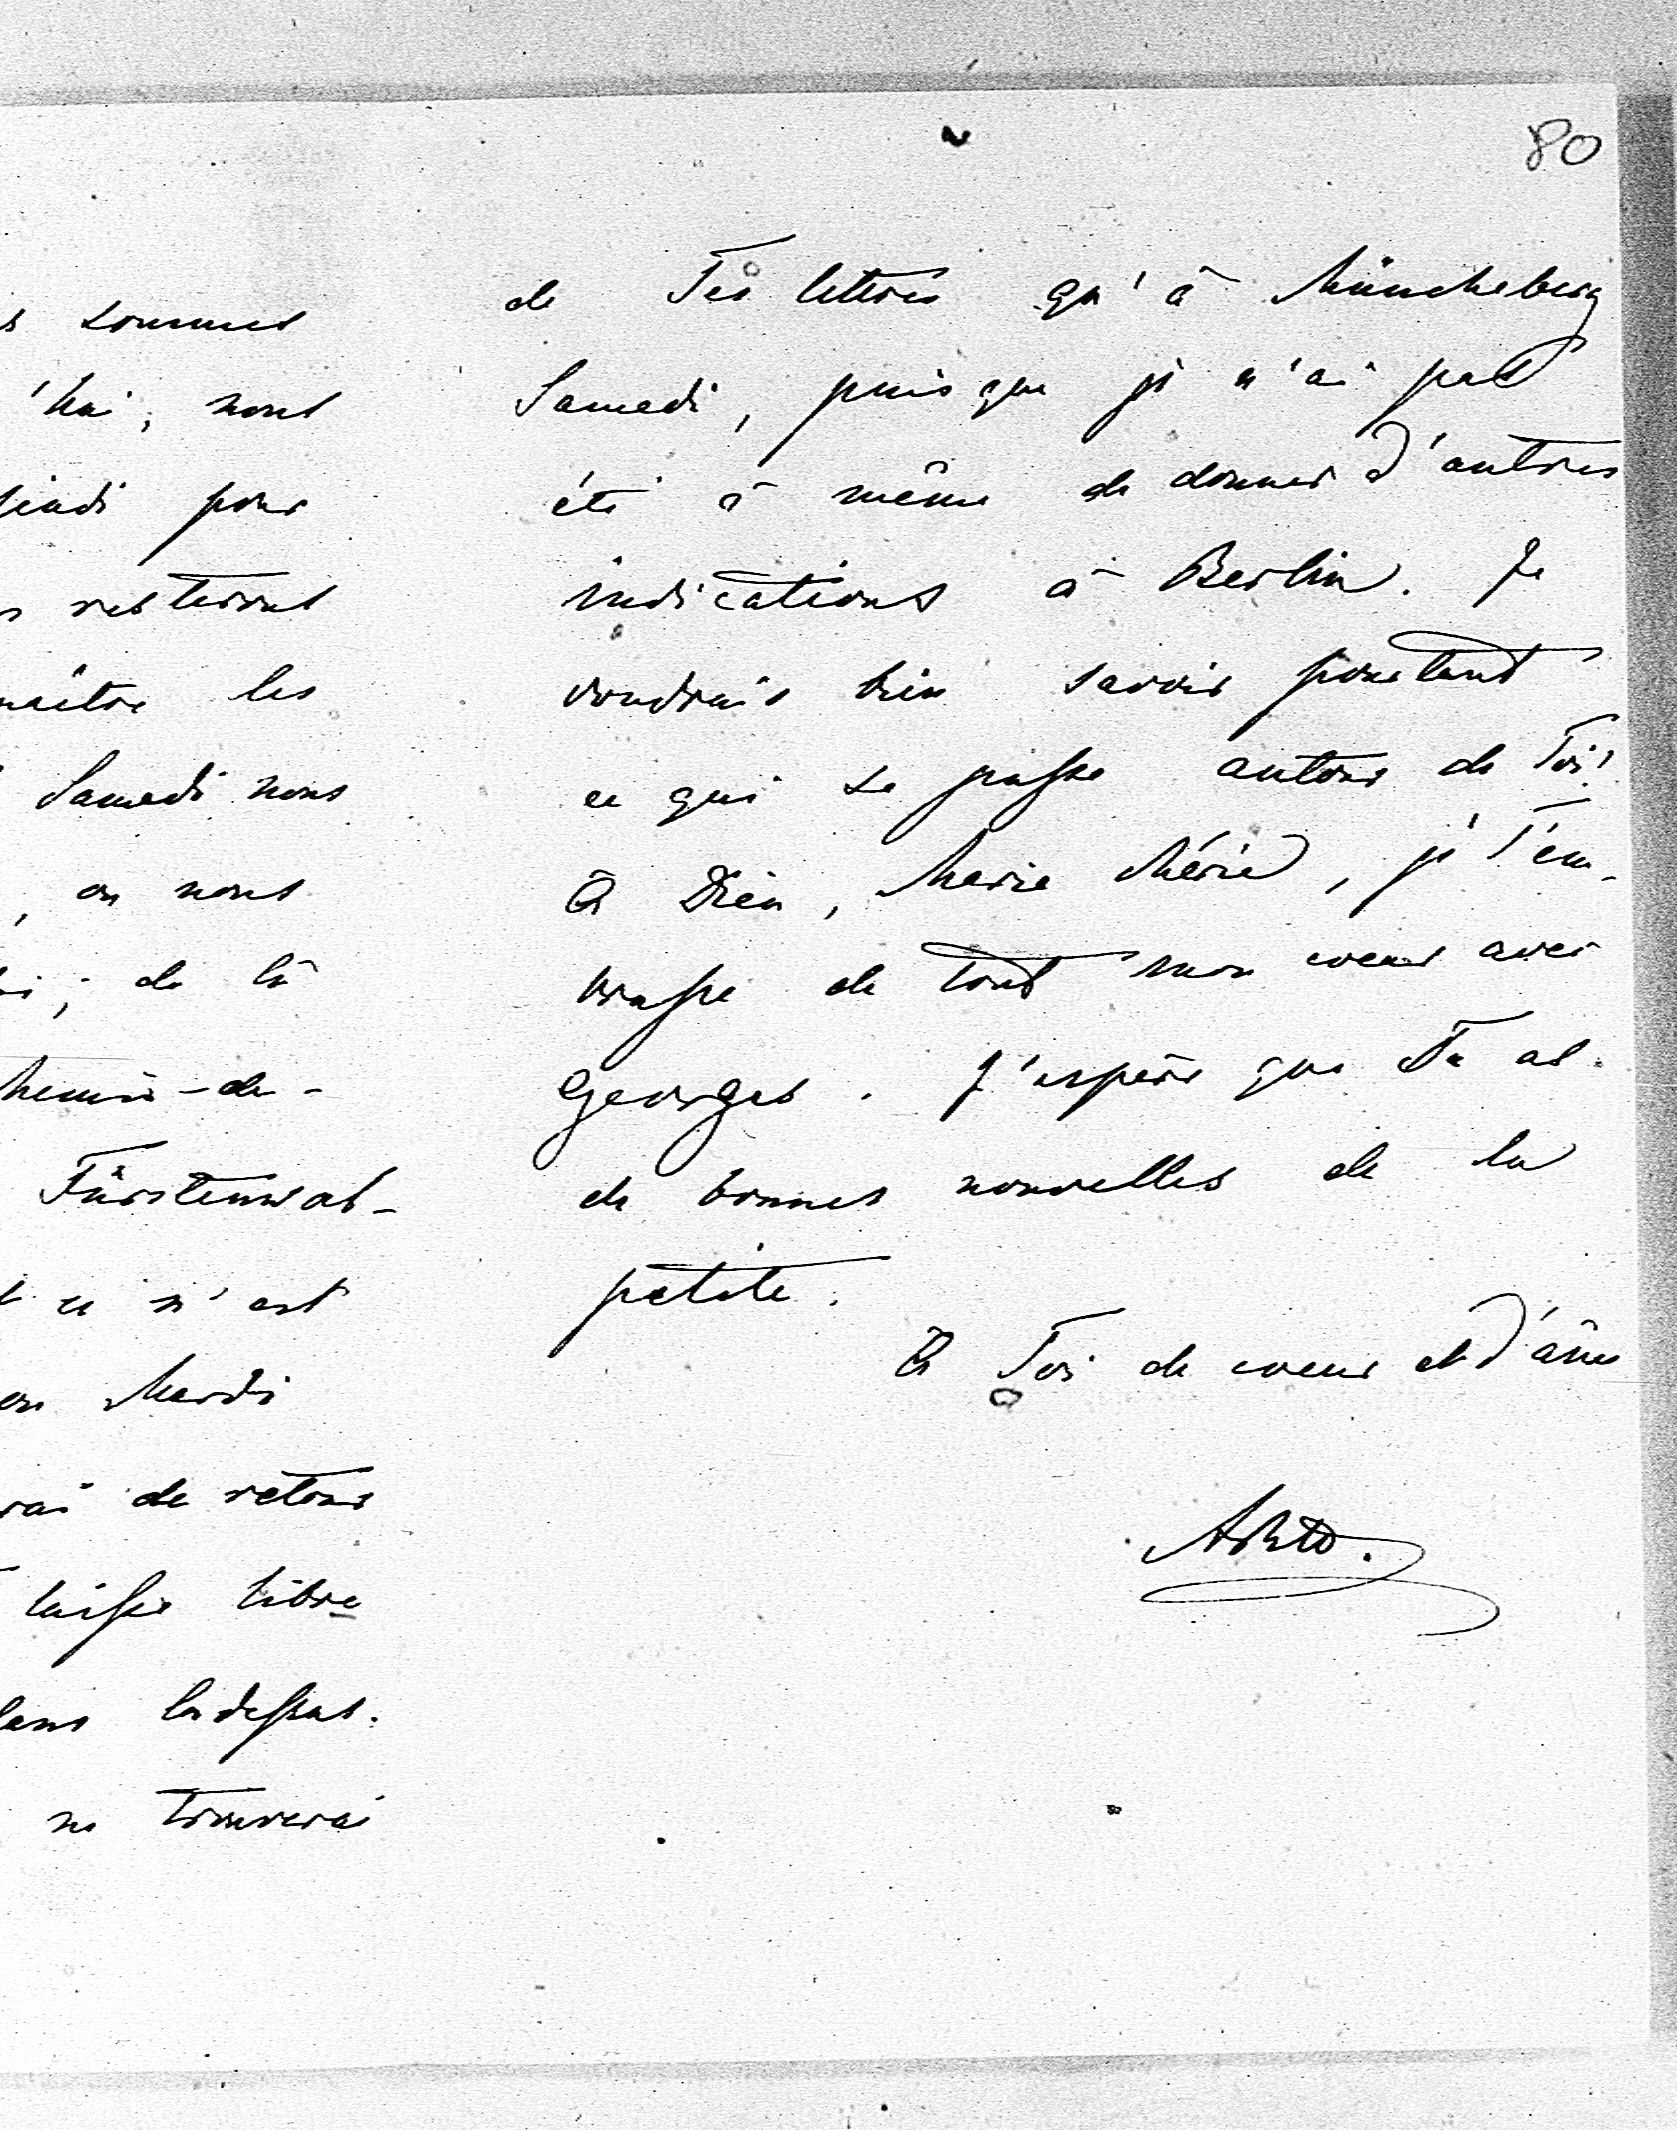 80
s sommes
'hui, nous
jeudi pour
s resterons
naître les
Samedi nous
, on nous
; de là
hemin-de-
Fürstenwal-
ce n'est
on Mardi
rai de retour
laisse libre
dans ladessus.
ne trouverai
de Tes lettres qu'à Müncheberg
Samedi, puisque je n'ai pas
été à même de donner d'autres
indications à Berlin. Je
voudrais bien savoir pourtant
ce qui se passe autour de Toi!
A Dieu, Marie chérie, je T'em-
brasse de tout mon coeur avec
Georges. J'espère que Tu as
de bonnes nouvelles de la
petite.
A Toi de coeur et d'âme